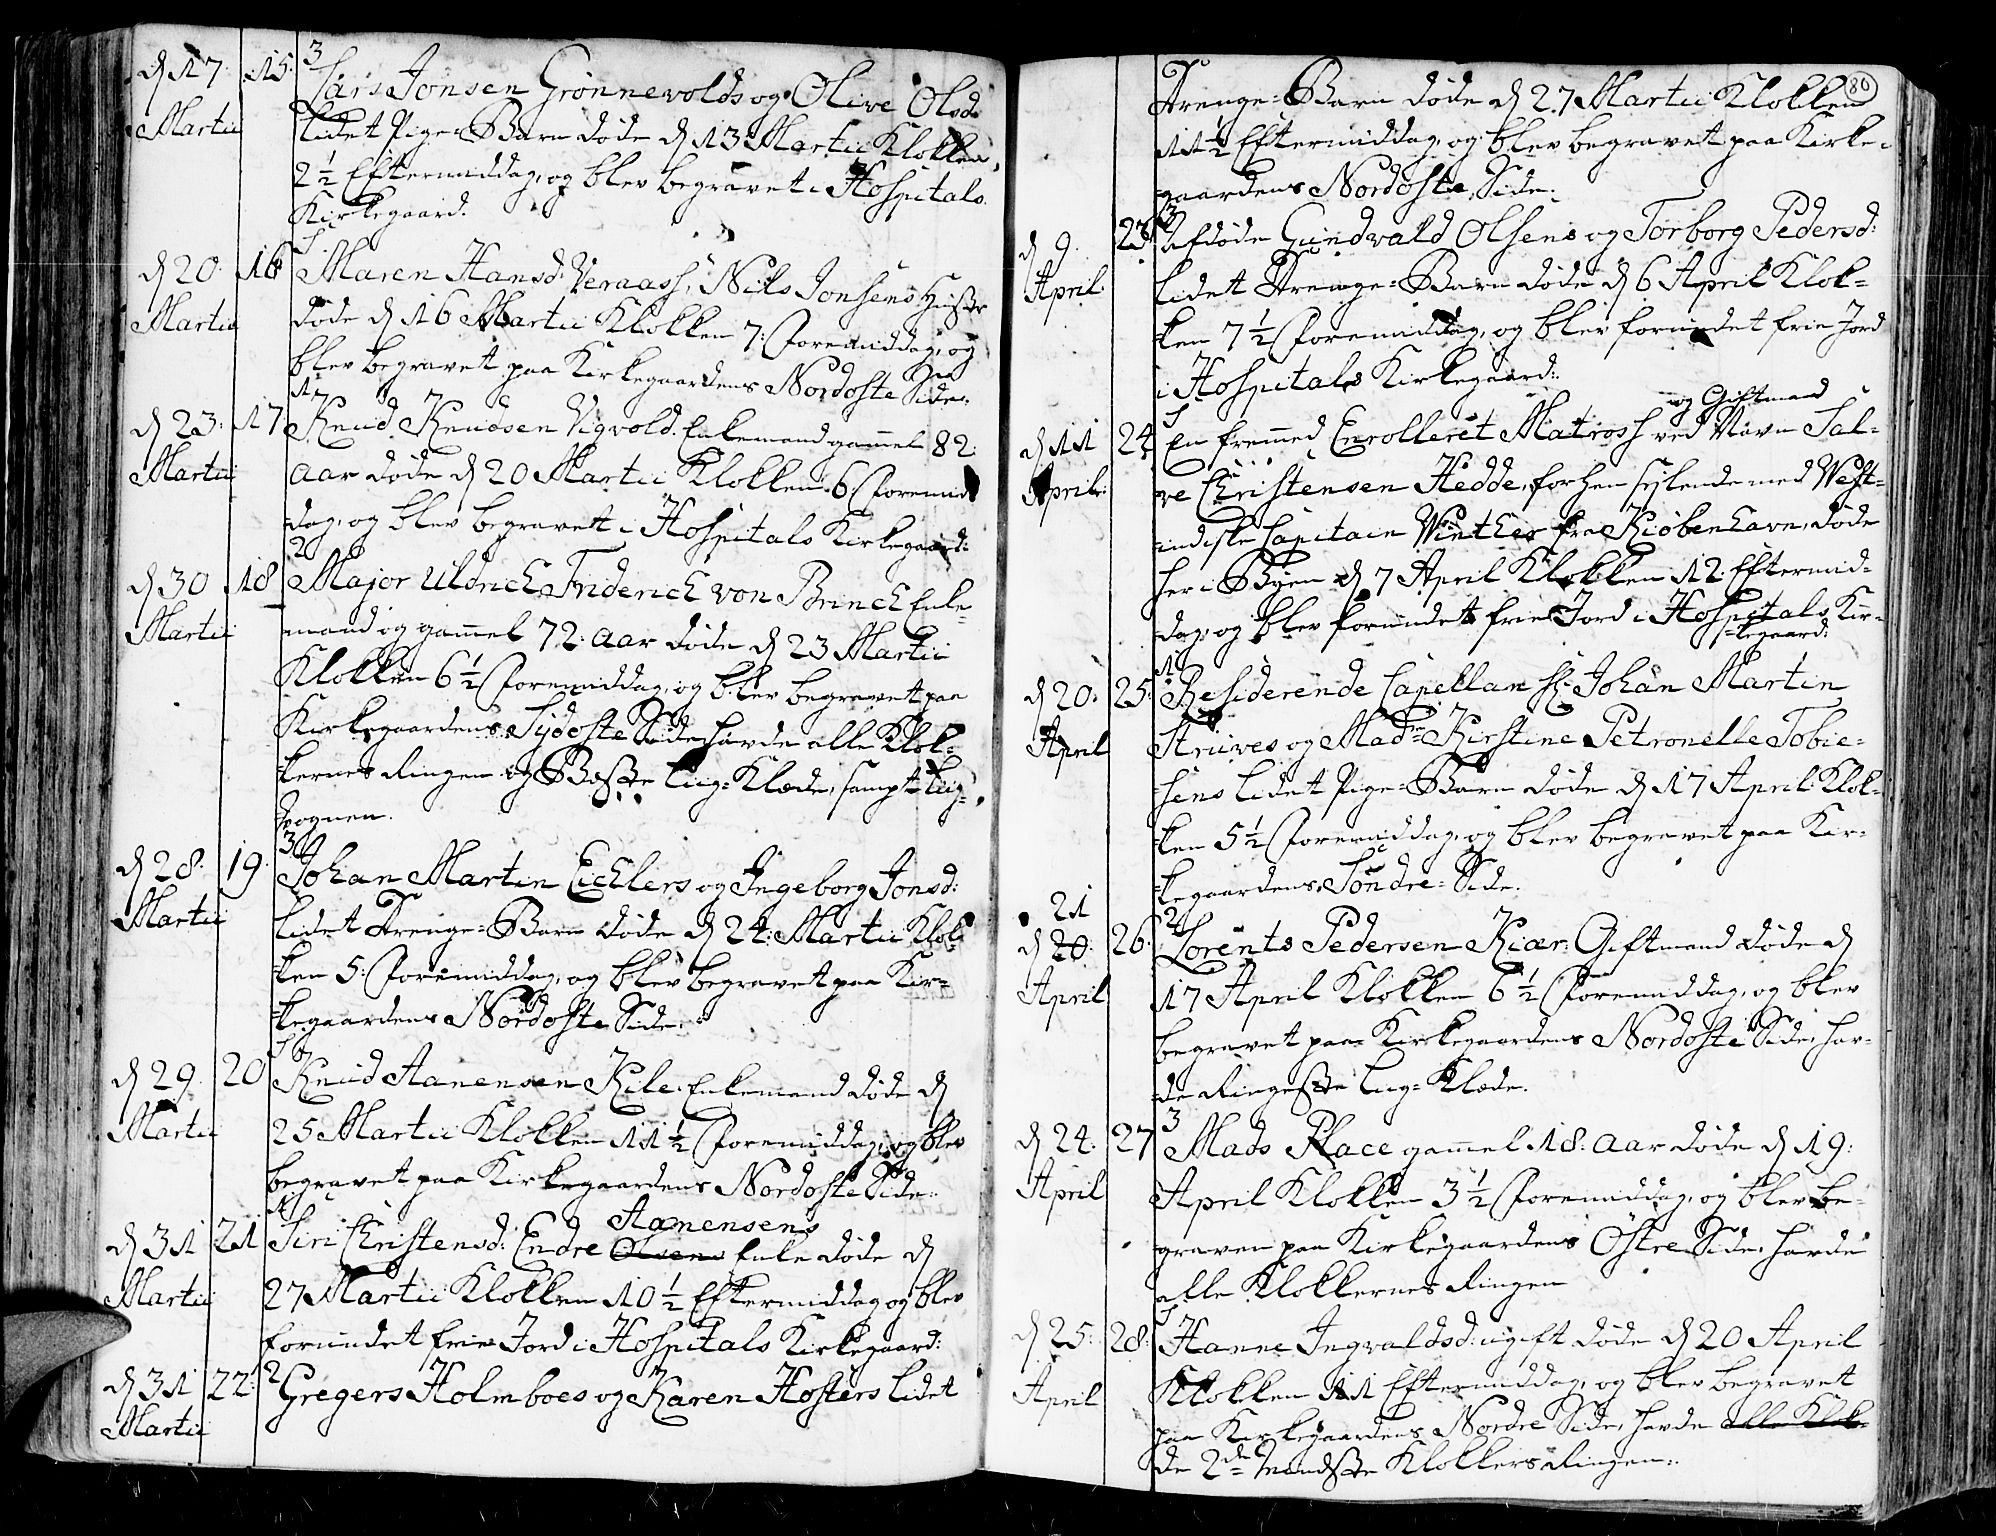 d 17. Martii 15. 3
Lars Jonsen Grönnevolds og Olive Olsd:
lidet Pige-Barn døde d 13 Martii Klokken
2½ Eftermiddag, og blev begravet i Hospitals
Kirkegaard.
d 20. Martii 16 S
Maren Hansd: Veraas, Nils Jonsens
døde d 16 Martii Klokken 7: Foremiddag, og
blev begravet paa Kirkegaardens Nordoste Side.
d 23. Martii 17 1
Knud Knudsen Vigvold. Enkemand gamel 82.
Aar døde d 20 Martii Klokken 6 Foremid
dag, og blev begravet i Hospitals Kirkegaard:
d 30 Martii 18 2
Major Uldrich Friderich von Brinch Enke-
mand og gamel 72: Aar døde d 23 Martii
Klokken 6½ Foremiddag, og blev begravet paa
Kirkegaardens Sydoste Side, havde alle Klok-
kernes Ringen og Beste Liig-Klæde, sampt Liig-
Vognen.
d 28. Martii 19. 3
Johan Martin Eichlers og Ingeborg Jonsd:
lidet Drenge-Barn døde d 24: Martii Klok-
ken 5: Foremiddag, og blev begravet paa Kir-
kegaardens Nordoste Side.
d 29. Martii 20 S
Knud Aanensen Kile. Enkemand døde d
25 Martii Klokken 11½ Foremiddag, og blev
begravet paa Kirkegaardens Nordoste Side.
d 31 Martii 21 1
Aanensens
Siri Christensd: Endre Olsens Enke døde d
27 Martii Klokken 10½ Eftermiddag og blev
forundet frie Jord i Hospitals Kirkegaard:
d 31 Martii 22. 2
Gregers Holmboes og Karen Hosters lidet
80
Drenge-Barn døde d 27 Martii Klokken
11½ Eftermiddag, og blev begravet paa Kirke-
gaardens Nordoste Side.
d 9. April 23 3
Afdøde Gundvald Olsens og Torborg Pedersd:
lidet Drenge-Barn døde d 6 April Klok-
ken 7½ Foremiddag, og blev forundet frie Jord
i Hospitals Kirkegaard:
d 11 April 24 S
og Giftmand
En fremmed Enrolleret Matross ved Navn Sal-
ve Christensen Hedde, forhen sejlende med West-
indiske Capitain Winther fra Kiöbenhavn, døde
her i Byen d 7 April Klokken 12. Eftermid-
dag, og blev forundet frie Jord i Hospitals Kir-
kegaard:
d 20. April 25. 1
Residerende Capellan Hr Johan Martin
Strüves og Madme Kirstine Petronelle Tobie-
sens lidet Pige-Barn døde d 17 April Klok-
ken 5½ Foremiddag, og blev begravet paa Kir-
kegaardens Söndre Side.
21
d 20. April 26. 2
Lorents Pedersen Kiær. Giftmand døde d
17 April Klokken 6½ Foremiddag, og blev
begravet paa Kirkegaardens Nordoste Side, hav-
de Ringeste Liig-Klæde.
d 24. April 27 3
Mads Place gamel 18: Aar døde d 19:
April Klokken 3½ Foremiddag, og blev be-
graven paa Kirkegaardens Östre Side, havde
alle Klokkernes Ringen
d 25. April 28. S
Hanne Ingvaldsd: ugift døde d 20 April
Klokken 11 Eftermiddag, og blev begravet
paa Kirkegaardens Nordre Side, havde alle Klok-
de 2de Mindste Klokkers Ringen.